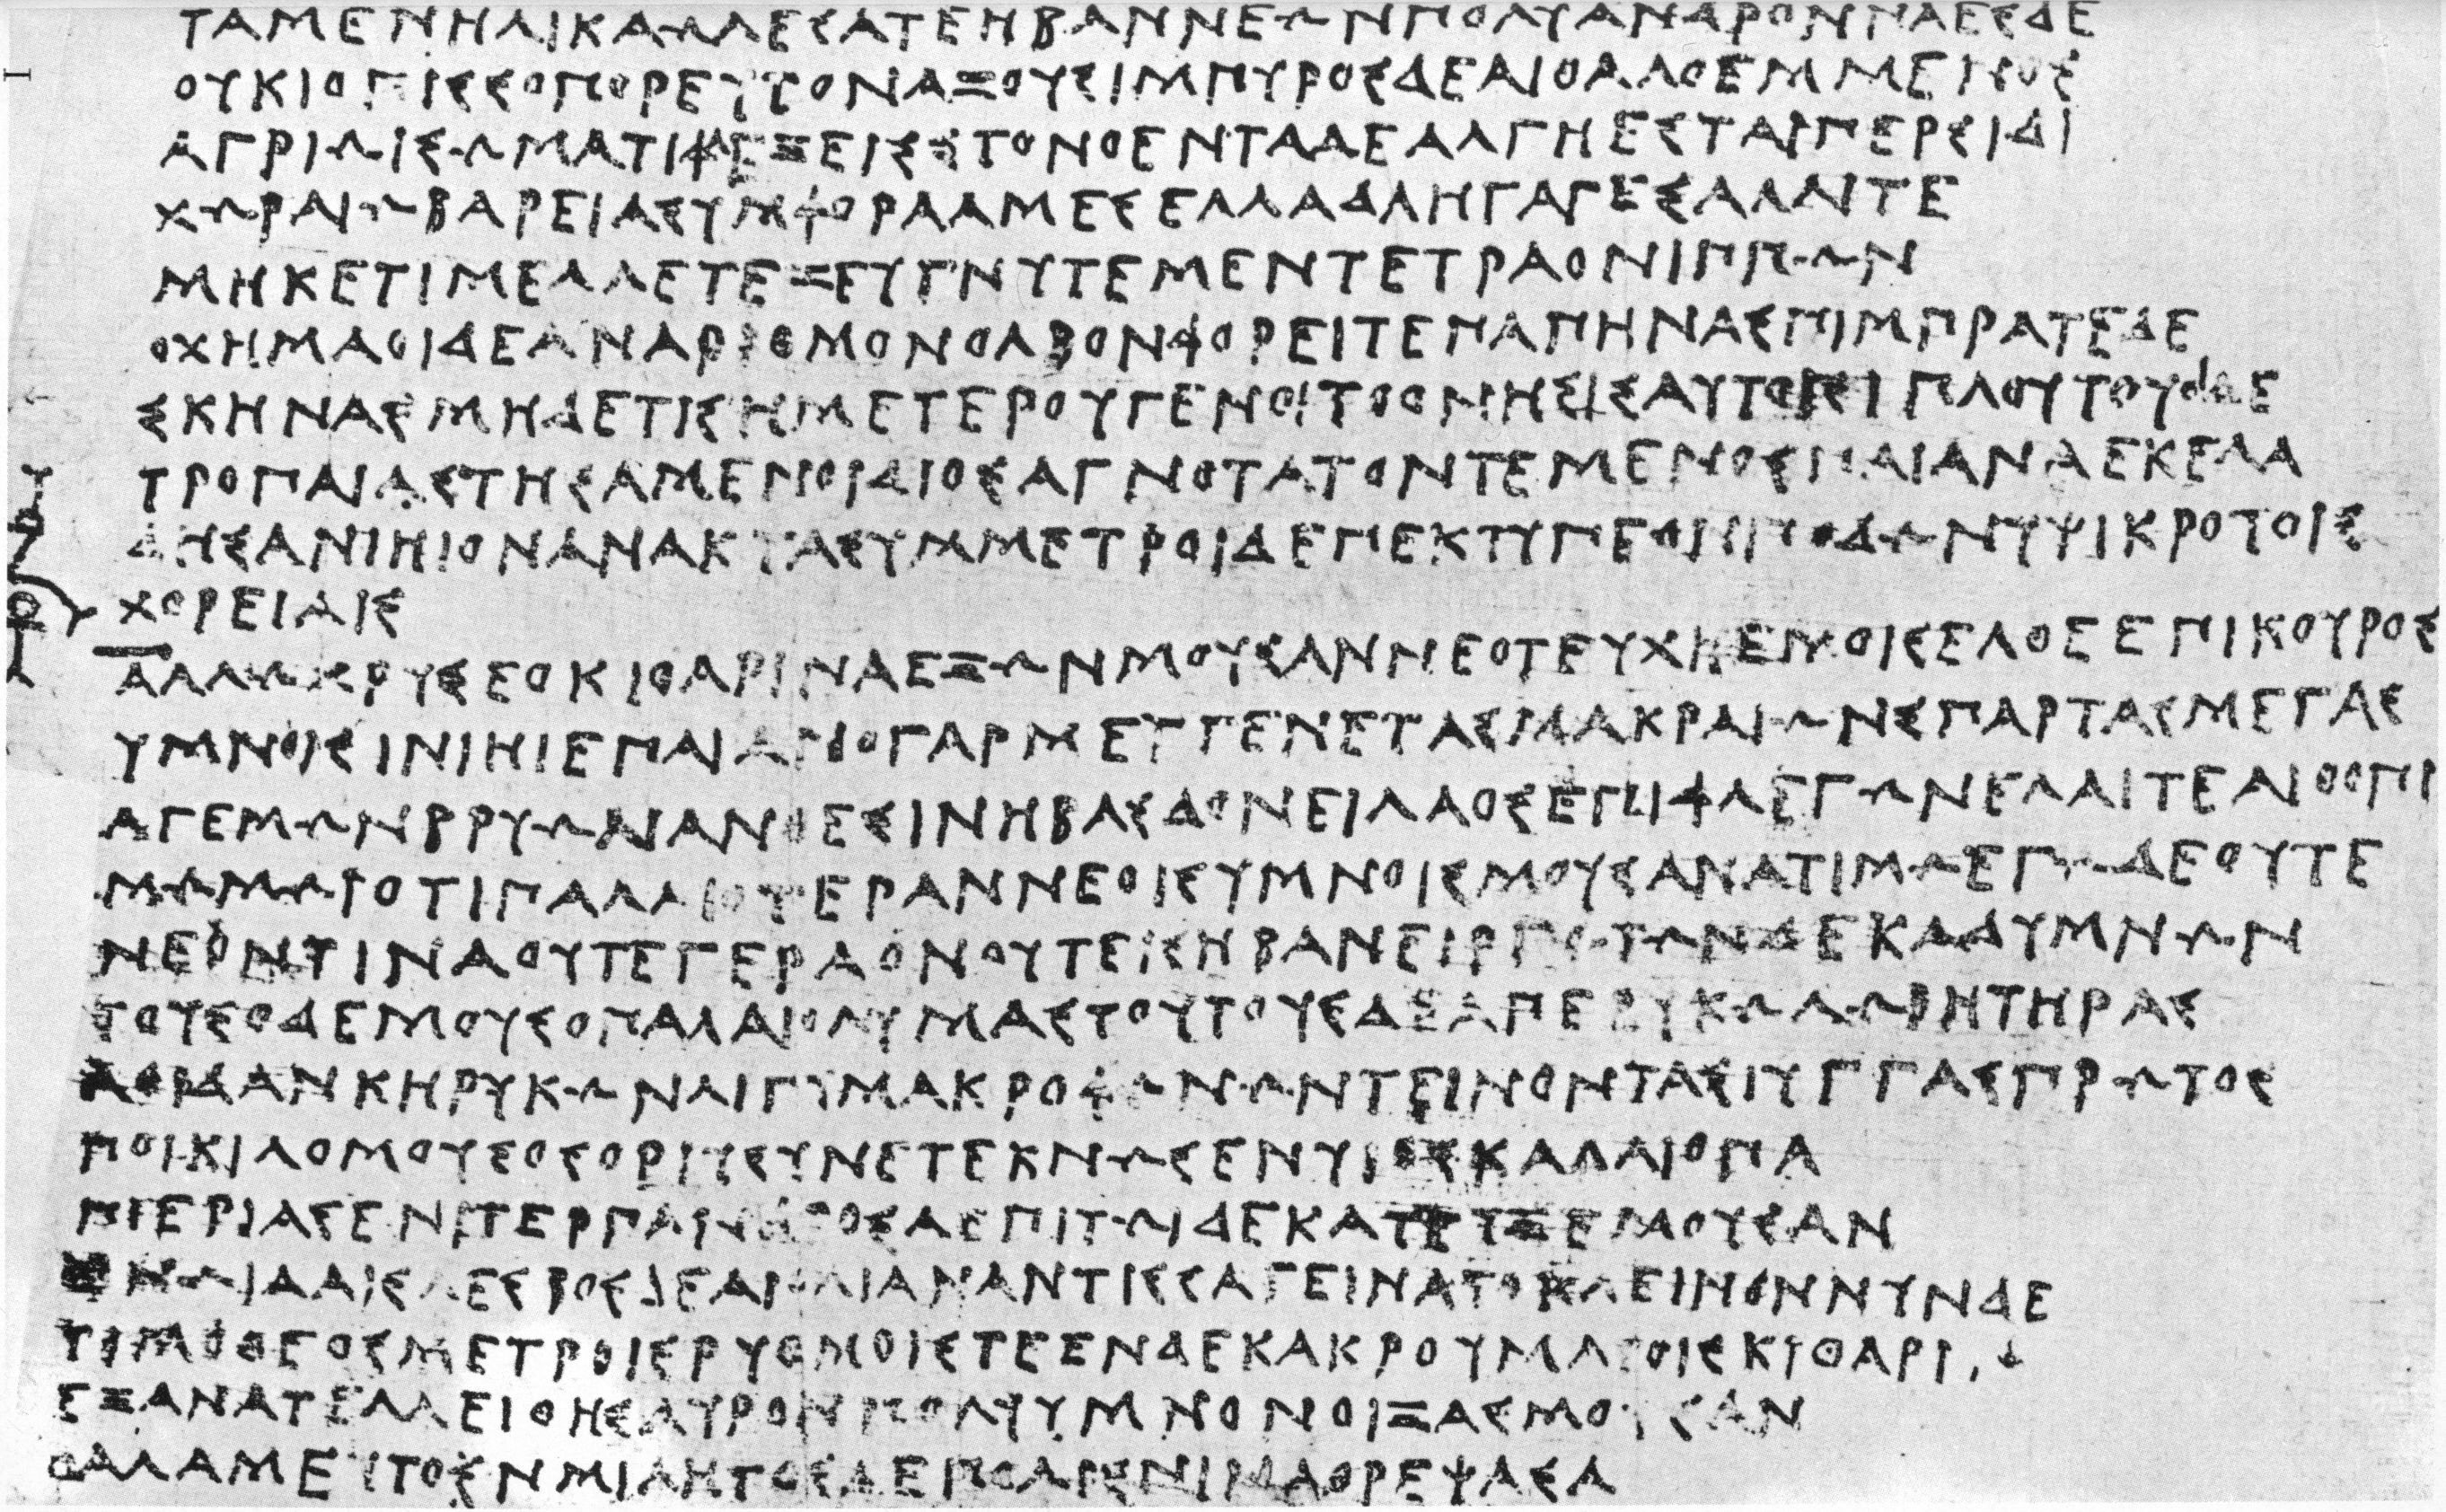 ΤΑΜΕΝΗΛΙΚΑΩΛΕϹΑΤΕΗΒΑΝΝΕΩΝΠΟΛΥΑΝΔΡΟΝΝΑΕϹΔΕ
ΟΥΚΙΟΠΙϹϹΟΠΟΡΕΥΤΟΝΑΞΟΥϹΙΜΠΥΡΟϹΔΕΑΙΘΑΛΟΕΜΜΕΝΟϹ
ΑΓΡΙΩΙϹΩΜΑΤΙΦΛΕΞΕΙϹΤΟΝΟΕΝΤΑΔΕΑΛΓΗΕϹΤΑΙΠΕΡϹΙΔΙ
ΧΩΡΑΙΩΒΑΡΕΙΑϹΥΜΦΟΡΑΑΜΕϹΕΛΛΑΔΛΗΓΑΓΕϹΑΛΛΙΤΕ
ΜΗΚΕΤΙΜΕΛΛΕΤΕΖΕΥΓΝΥΤΕΜΕΝΤΕΤΡΑΟΝΙΠΠΩΝ
ΟΧΗΜΑΟΙΔΕΑΝΑΡΙΘΜΟΝΟΛΒΟΝΦΟΡΕΙΤΕΠΑΠΗΝΑϹΠΙΜΠΡΑΤΕΔΕ
ϹΚΗΝΑϹΜΗΔΕΤΙϹΗΜΕΤΕΡΟΥΓΕΝΟΙΤΟΟΝΗϹΙϹΑΥΤΟΙϹΙΠΛΟΥΤΟΥΟΙΔΕ
ΤΡΟΠΑΙΑϹΤΗϹΑΜΕΝΟΙΔΙΟϹΑΓΝΟΤΑΤΟΝΤΕΜΕΝΟϹΠΑΙΑΝΑΕΚΕΛΑ
ΔΗϹΑΝΙΗΙΟΝΑΝΑΚΤΑϹΥΜΜΕΤΡΟΙΔΕΠΕΚΤΥΠΕΟΝΠΟΔΩΝΥΨΙΚΡΟΤΟΙϹ
ΧΟΡΕΙΑΙϹ
ΑΛΛΩΧΡΥϹΕΟΚΙΘΑΡΙΝΑΕΞΩΝΜΟΥϹΑΝΝΕΟΤΕΥΧΗΕΜΟΙϹΕΛΘΕΕΠΙΚΟΥΡΟϹ
ΥΜΝΟΙϹΙΝΙΗΙΕΠΑΙΑΝΟΓΑΡΜΕΥΓΕΝΕΤΑϹΜΑΚΡΑΙΩΝϹΠΑΡΤΑϹΜΕΓΑϹ
ΑΓΕΜΩΝΒΡΥΩΝΑΝΘΕϹΙΝΗΒΑϹΔΟΝΕΙΛΑΟϹΕΠΙΦΛΕΓΩΝΕΛΑΙΤΕΑΙΘΟΠΙ
ΜΩΜΩΙΟΤΙΠΑΛΑΙΟΤΕΡΑΝΝΕΟΙϹΥΜΝΟΙϹΜΟΥϹΑΝΑΤΙΜΩΕΓΩΔΕΟΥΤΕ
ΝΕΟΝΤΙΝΑΟΥΤΕΓΕΡΑΟΝΟΥΤΕΙϹΗΒΑΝΕΙΡΓΩΤΩΝΔΕΚΑΔΥΜΝΩΝ
ΤΟΥϹΟΔΕΜΟΥϹΟΠΑΛΑΙΟΛΥΜΑϹΤΟΥΤΟΥϹΔΕΑΠΕΡΥΚΩΛΩΒΗΤΗΡΑϹ
ΑΟΙΔΑΝΚΗΡΥΚΩΝΛΙΓΥΜΑΚΡΟΦΩΝΩΝΤΕΙΝΟΝΤΑϹΙΥΓΓΑϹΠΡΩΤΟϹ
ΠΟΙΚΙΛΟΜΟΥϹΟϹΟΡΙΥϹΥΝΕΤΕΚΝΩϹΕΝΥΙΟϹΚΑΛΛΙΟΠΑ
ΠΙΕΡΙΑϹΕΝΙΤΕΡΠΑΝΔΡΟϹΔΕΠΙΤΩΙΔΕΚΑΤΕΥΞΕΜΟΥϹΑΝ
ΕΝΩΙΔΑΙϹΛΕϹΒΟϹΔΕΑΙΟΛΙΑΝΑΝΤΙϹϹΑΓΕΙΝΑΤΟΚΛΕΙΝΟΝΝΥΝΔΕ
ΤΙΜΟΘΕΟϹΜΕΤΡΟΙϹΡΥΘΜΟΙϹΤΕΕΝΔΕΚΑΚΡΟΥΜΑΤΟΙϹΚΙΘΑΡΙ
ΕΞΑΝΑΤΕΛΛΕΙΘΗϹΑΥΡΟΝΠΟΛΥΥΜΝΟΝΟΙΞΑϹΜΟΥϹΑΝ
ΘΑΛΑΜΕΥΤΟΝΜΙΛΗΤΟϹΔΕΠΟΛΙϹΝΙΝΑΘΡΕΨΑϹΑ